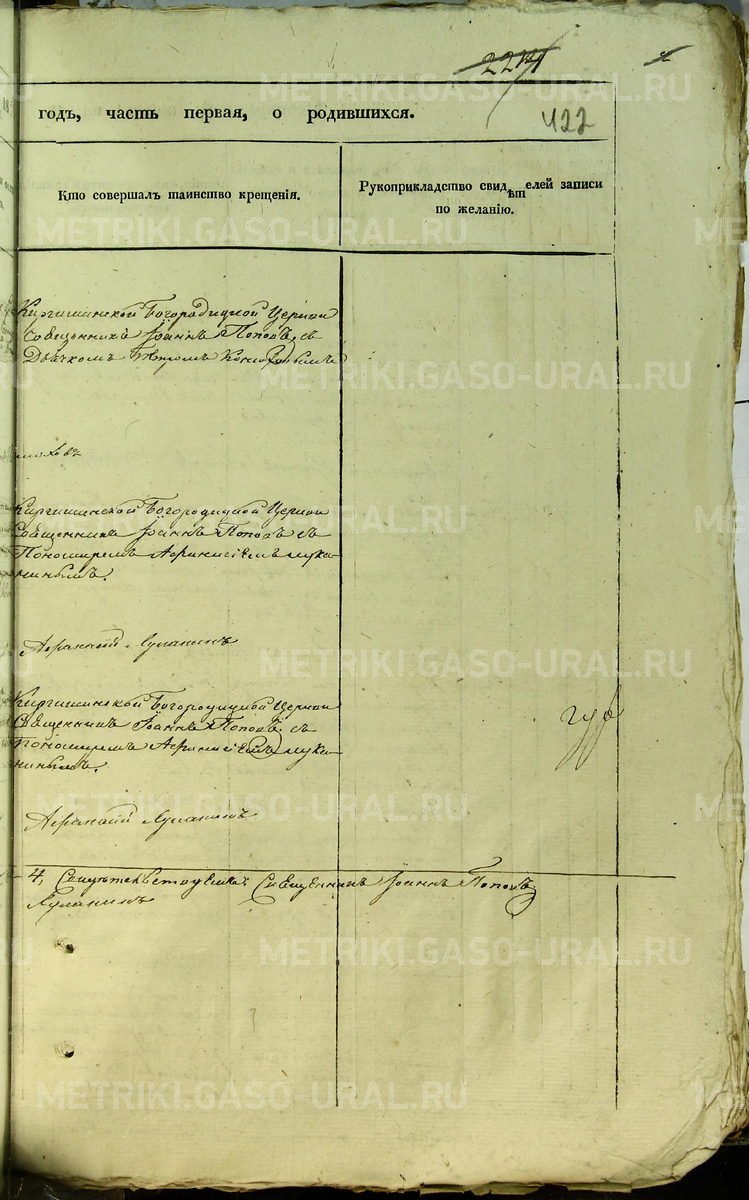 422
годъ, часть первая, о родившихся.
Кто совершалъ таинство крещенія.
Рукоприкладство свидѣтелей записи
по желанію.
Киргишанской Богородицкой Церкви
Священникъ Іоаннъ Поповъ съ
Дьячкомъ Петромъ
Киргишанской Богородицкой Церкви
Священникъ Іоаннъ Поповъ съ
Пономаремъ Афанасіемъ Лука-
нинымъ.
Луканинъ
Киргишанской Богородицкой Церкви
Священникъ Іоаннъ Поповъ съ
Пономаремъ Афанасіемъ Лука-
нинымъ.
Луканинъ
4, Свидѣтельствуемъ: Священникъ Іоаннъ Поповъ
Луканинъ
METRIKI.GASO-URAL.RU